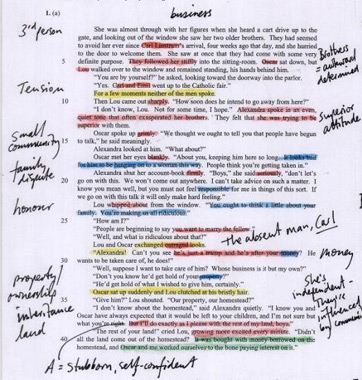 1. (a)
business
3rd person
She was almost through with her figures when she heard a cart drive up to the
gate, and looking out of the window she saw her two older brothers. They had seemed
to avoid her ever since Carl Linstrum's arrival, four weeks ago that day, and she hurried
to the door to welcome them. She saw at once that they had come with some very
5 definite purpose. They followed her stiffly into the sitting-room. Oscar sat down, but
Lou walked over to the window and remained standing, his hands behind him.
"You are by yourself?" he asked, looking toward the doorway into the parlor.
"Yes. Carl and Emil went up to the Catholic fair."
For a few moments neither of the men spoke.
10 Then Lou came out sharply. "How soon does he intend to go away from here?"
"I don't know, Lou. Not for some time, I hope." Alexandra spoke in an even,
quiet tone that often exasperated her brothers. They felt that she was trying to be
superior with them.
Oscar spoke up grimly. "We thought we ought to tell you that people have begun
15 to talk," he said meaningly.
Alexandra looked at him. "What about?"
Oscar met her eyes blankly. "About you, keeping him here so long. It looks bad
for him to be hanging on to a woman this way. People think you're getting taken in."
Alexandra shut her account-book firmly. "Boys," she said seriously, "don't let's
20 go on with this. We won't come out anywhere. I can't take advice on such a matter. I
know you mean well, but you must not feel responsible for me in things of this sort. If
we go on with this talk it will only make hard feeling."
Lou whipped about from the window. "You ought to think a little about your
family. You're making us all ridiculous."
25 "How am I?"
"People are beginning to say you want to marry the fellow."
"Well, and what is ridiculous about that?"
Lou and Oscar exchanged outraged looks.
"Alexandra! Can't you see he's just a tramp and he's after your money? He
30 wants to be taken care of, he does!"
"Well, suppose I want to take care of him? Whose business is it but my own?"
"Don't you know he'd get hold of your property?"
"He'd get hold of what I wished to give him, certainly."
Oscar sat up suddenly and Lou clutched at his bristly hair.
35 "Give him?" Lou shouted. "Our property, our homestead?"
"I don't know about the homestead," said Alexandra quietly. "I know you and
Oscar have always expected that it would be left to your children, and I'm not sure but
what you're right. But I'll do exactly as I please with the rest of my land, boys."
The rest of your land!" cried Lou, growing more excited every minute. "Didn't
40 all the land come out of the homestead? It was bought with money borrowed on the
homestead, and Oscar and me worked ourselves to the bone paying interest on it."
Tension
small
community
family
dispute
honour
property/
ownership
inheritance
land
Brothers =
awkward
determined
Superior
attitude
the absent man, Carl
money
She's
independent -
They're
influenced
by community
A = Stubborn, self-confident